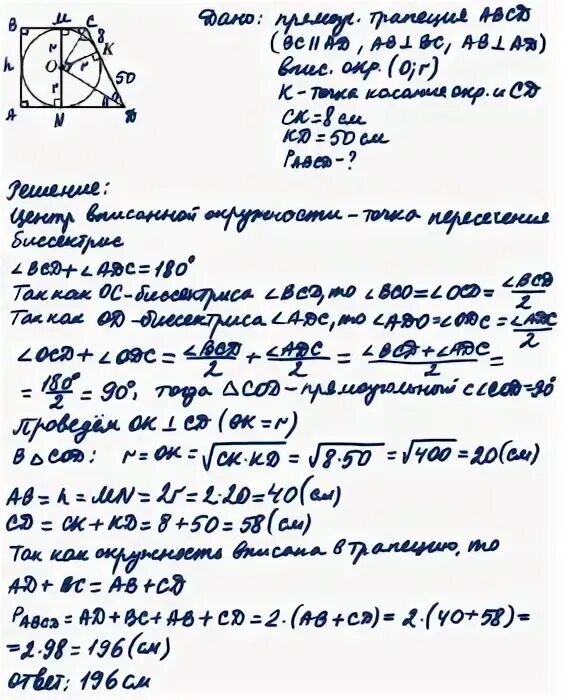 B M C
8
K
h
r
O
r
r
50
A N D
Дано: прямоуг. трапеция ABCD
(BC∥AD, AB⊥BC, AB⊥AD)
впис. окр. (O; r)
K - точка касания окр. и CD
CK = 8 см
KD = 50 см
P_ABCD - ?
Решение:
Центр вписанной окружности - точка пересечения
биссектрис
∠BCD + ∠ADC = 180°
Так как OC - биссектриса ∠BCD, то ∠BCO = ∠OCD = ∠BCD/2
Так как OD - биссектриса ∠ADC, то ∠ADO = ∠ODC = ∠ADC/2
∠OCD + ∠ODC = ∠BCD/2 + ∠ADC/2 = (∠BCD + ∠ADC)/2 =
= 180°/2 = 90°, тогда △COD - прямоугольный с ∠COD = 90°
Проведём OK ⊥ CD (OK = r)
В △COD: r = OK = √CK·KD = √8·50 = √400 = 20 (см)
AB = h = MN = 2r = 2·20 = 40 (см)
CD = CK + KD = 8 + 50 = 58 (см)
Так как окружность вписана в трапецию, то
AD + BC = AB + CD
P_ABCD = AD + BC + AB + CD = 2·(AB + CD) = 2·(40 + 58) =
= 2·98 = 196 (см)
Ответ: 196 см